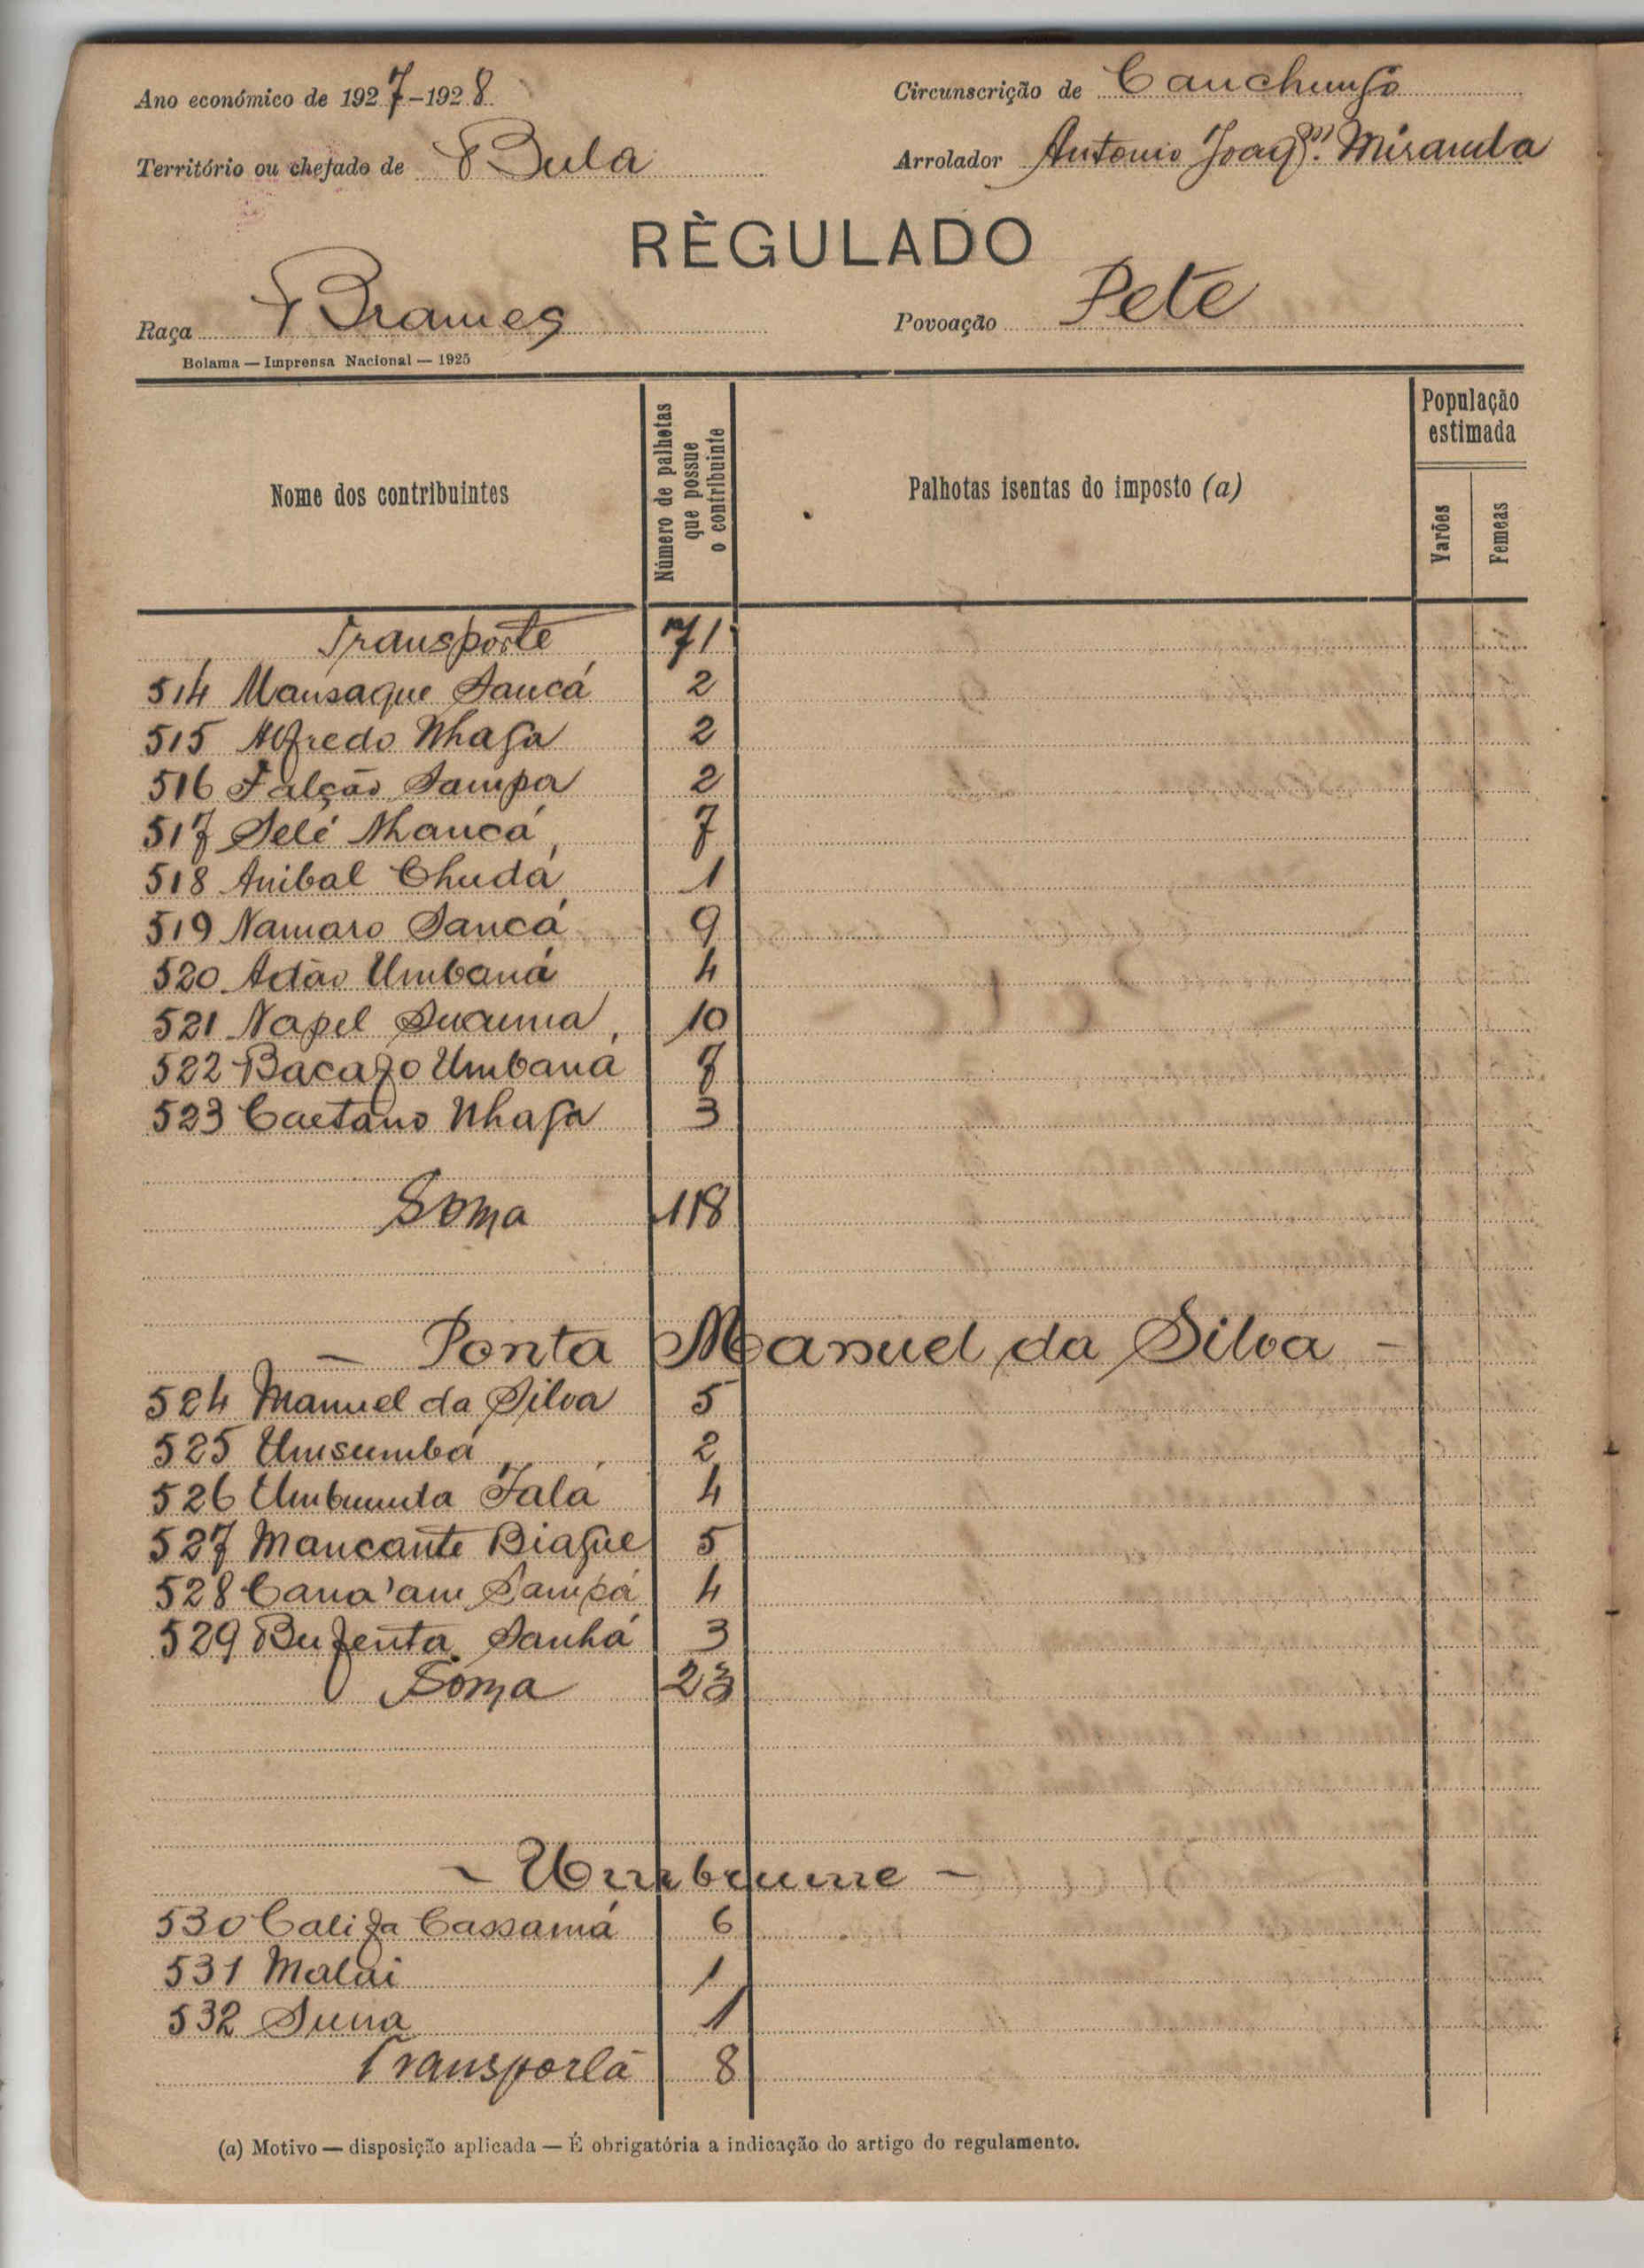 Ano económico de 1927-1928
Circunscrição de Canchungo
Território ou chefado de Bula
Arrolador Antonio Joaqm. Miranda
RÈGULADO
Raça Brames
Povoação Pete
Bolama — Imprensa Nacional — 1925
Nome dos contribuintes
Número de palhotas que possue o contribuinte
Palhotas isentas do imposto (a)
População estimada
Varões
Femeas
Transporte 71
514 Mansaque Sancá 2
515 Alfredo Nhaga 2
516 Falção Sampa 2
517 Selé Nhancá 7
518 Anibal Chudá 1
519 Namaro Sancá 9
520 Adão Umbaná 4
521 Napel Suauma 10
522 Bacajo Umbaná 7
523 Caetano Nhaga 3
Soma 118
- Ponta Manuel da Silva -
524 Manuel da Silva 5
525 Umsumbá 2
526 Umbunda Jalá 4
527 Mancante Biague 5
528 Cana'am Sampá 4
529 Bufenta Sanhá 3
Soma 23
- Umbaume -
530 Califa Cassamá 6
531 Malai 1
532 Suna 1
Transporta 8
(a) Motivo — disposição aplicada — É obrigatória a indicação do artigo do regulamento.